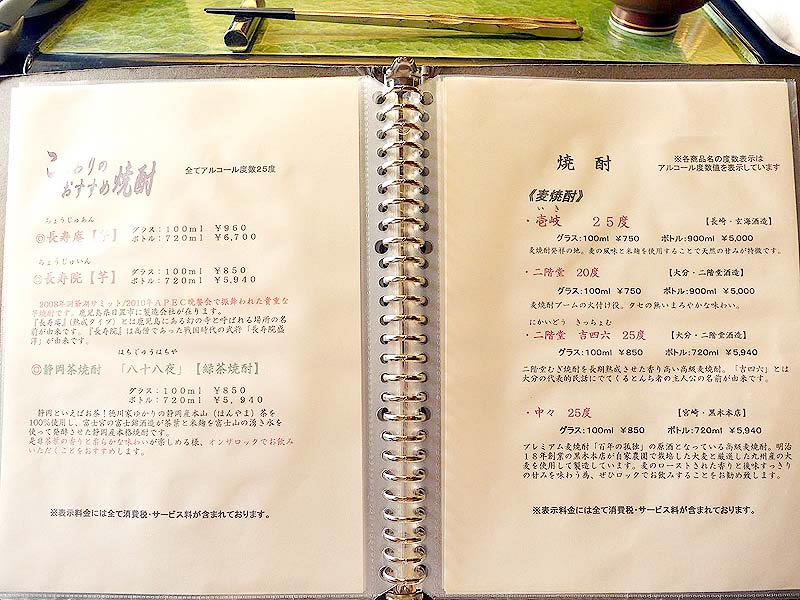 こだわりの
おすすめ焼酎
全てアルコール度数25度
ちょうじゅあん
◎長寿庵【芋】 グラス：100ml ￥960
ボトル：720ml ￥6,700
ちょうじゅいん
◎長寿院【芋】 グラス：100ml ￥850
ボトル：720ml ￥5,940
2008年洞爺湖サミット/2010年APEC晩餐会で振舞われた貴重な
芋焼酎です。鹿児島県日置市に製造会社が在ります。
『長寿庵』(熟成タイプ)とは鹿児島にある幻の寺と呼ばれる場所の名
前が由来です。『長寿院』は高僧であった戦国時代の武将「長寿院盛
淳」が由来です。
はちじゅうはちや
◎静岡茶焼酎 「八十八夜」【緑茶焼酎】
グラス：100ml ￥850
ボトル：720ml ￥5,940
静岡といえばお茶！徳川家ゆかりの静岡産本山(ほんやま)茶を
100%使用し、富士宮の富士錦酒造が茶葉と米麹を富士山の湧き水を
使って発酵させた静岡産本格焼酎です。
是非茶葉の香りと柔らかな味わいが楽しめる様、オンザロックでお飲み
いただくことをおすすめします。
※表示料金には全て消費税・サービス料が含まれております。
焼 酎
※各商品名の度数表示は
アルコール度数値を表示しています
《麦焼酎》
いき
・壱岐 25度 【長崎・玄海酒造】
グラス：100ml ￥750 ボトル：900ml ￥5,000
麦焼酎発祥の地。麦の風味と米麹を使用することで天然の甘みが特徴です。
・二階堂 20度 【大分・二階堂酒造】
グラス：100ml ￥750 ボトル：900ml ￥5,000
麦焼酎ブームの火付け役。クセの無いまろやかな味わい。
にかいどう きっちょむ
・二階堂 吉四六 25度 【大分・二階堂酒造】
グラス：100ml ￥850 ボトル：720ml ￥5,940
二階堂むぎ焼酎を長期熟成させた香り高い高級麦焼酎。「吉四六」とは
大分の代表的民話にでてくるとんち者の主人公の名前が由来です。
・中々 25度 【宮崎・黒木本店】
グラス：100ml ￥850 ボトル：720ml ￥5,940
プレミアム麦焼酎「百年の孤独」の原酒となっている高級麦焼酎。明治
18年創業の黒木本店が自家農園で栽培した大麦と厳選した九州産の大
麦を使用して製造しています。麦のローストされた香りと後味すっきり
の甘みを味わう為、ぜひロックでお飲みすることをお勧め致します。
※表示料金には全て消費税・サービス料が含まれております。